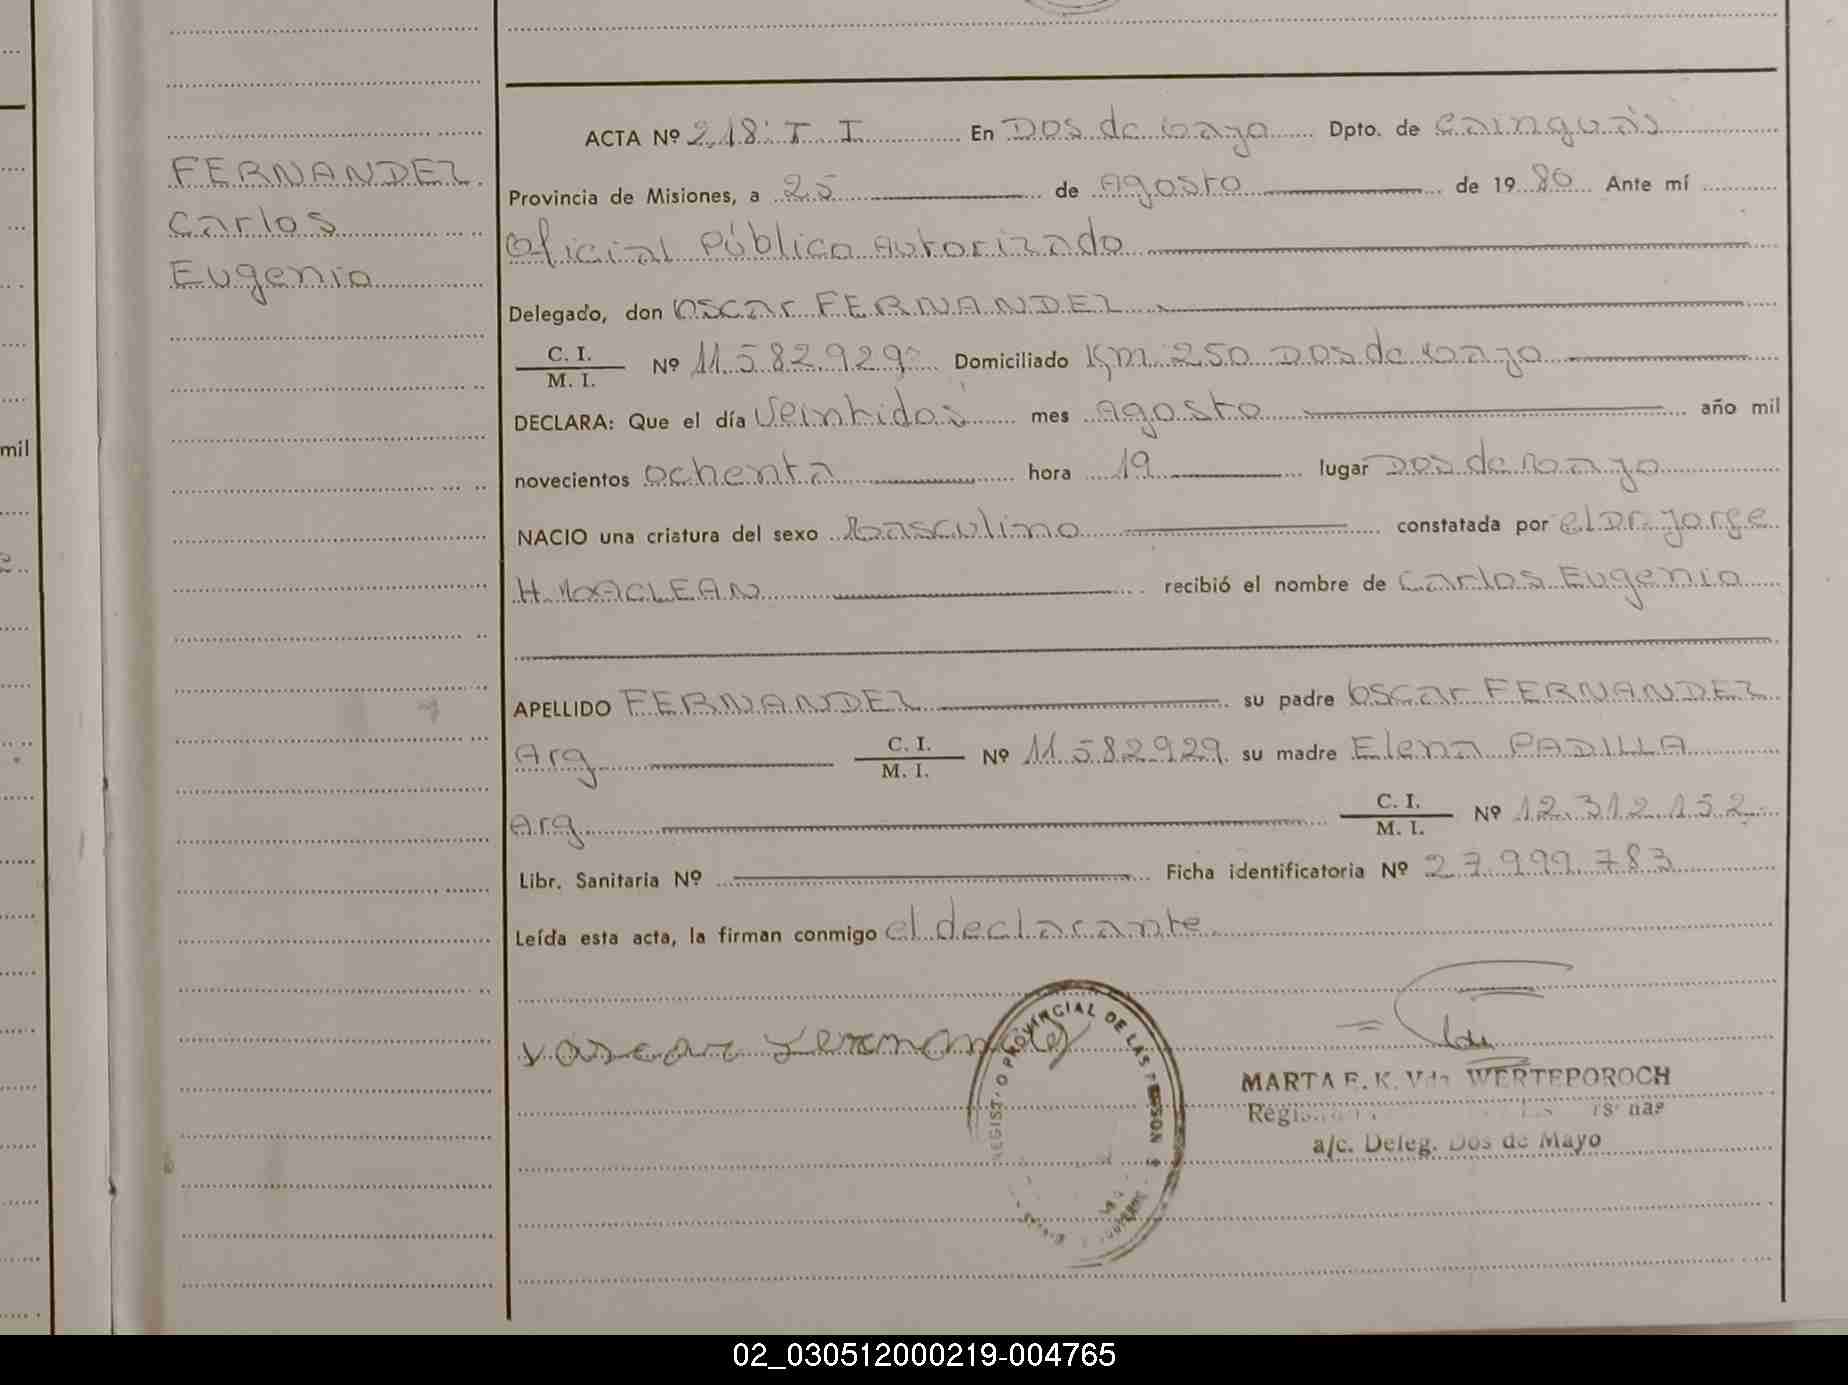 FERNANDEZ
Carlos
Eugenio
mil
ACTA Nº 218: T. I. En Dos de Mayo Dpto. de Cainguás
Provincia de Misiones, a 25 de Agosto de 1980 Ante mí
Oficial Público Autorizado
Delegado, don Oscar FERNANDEZ
C. I. / M. I. Nº 11.582.929 Domiciliado Km. 250 Dos de Mayo
DECLARA: Que el día Veintidos mes Agosto año mil
novecientos Ochenta hora 19 lugar Dos de Mayo
NACIO una criatura del sexo Masculino constatada por el Dr. Jorge
H. MACLEAN recibió el nombre de Carlos Eugenio
APELLIDO FERNANDEZ su padre Oscar FERNANDEZ
Arg C. I. / M. I. Nº 11.582.929 su madre Elena PADILLA
Arg C. I. / M. I. Nº 12.312.152
Libr. Sanitaria Nº Ficha identificatoria Nº 27.999.783
Leída esta acta, la firman conmigo el declarante.
PROVINCIAL DE LAS
MARTA E. K. Vda WERTEPOROCH
a/c. Deleg. Dos de Mayo
02_030512000219-004765